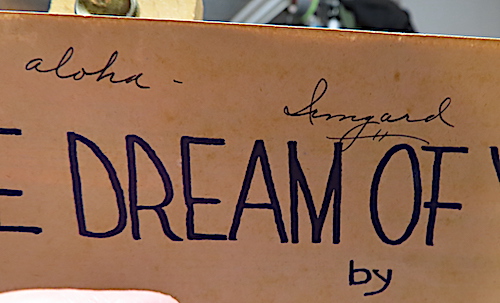 aloha - Irmgard
E DREAM OF
by